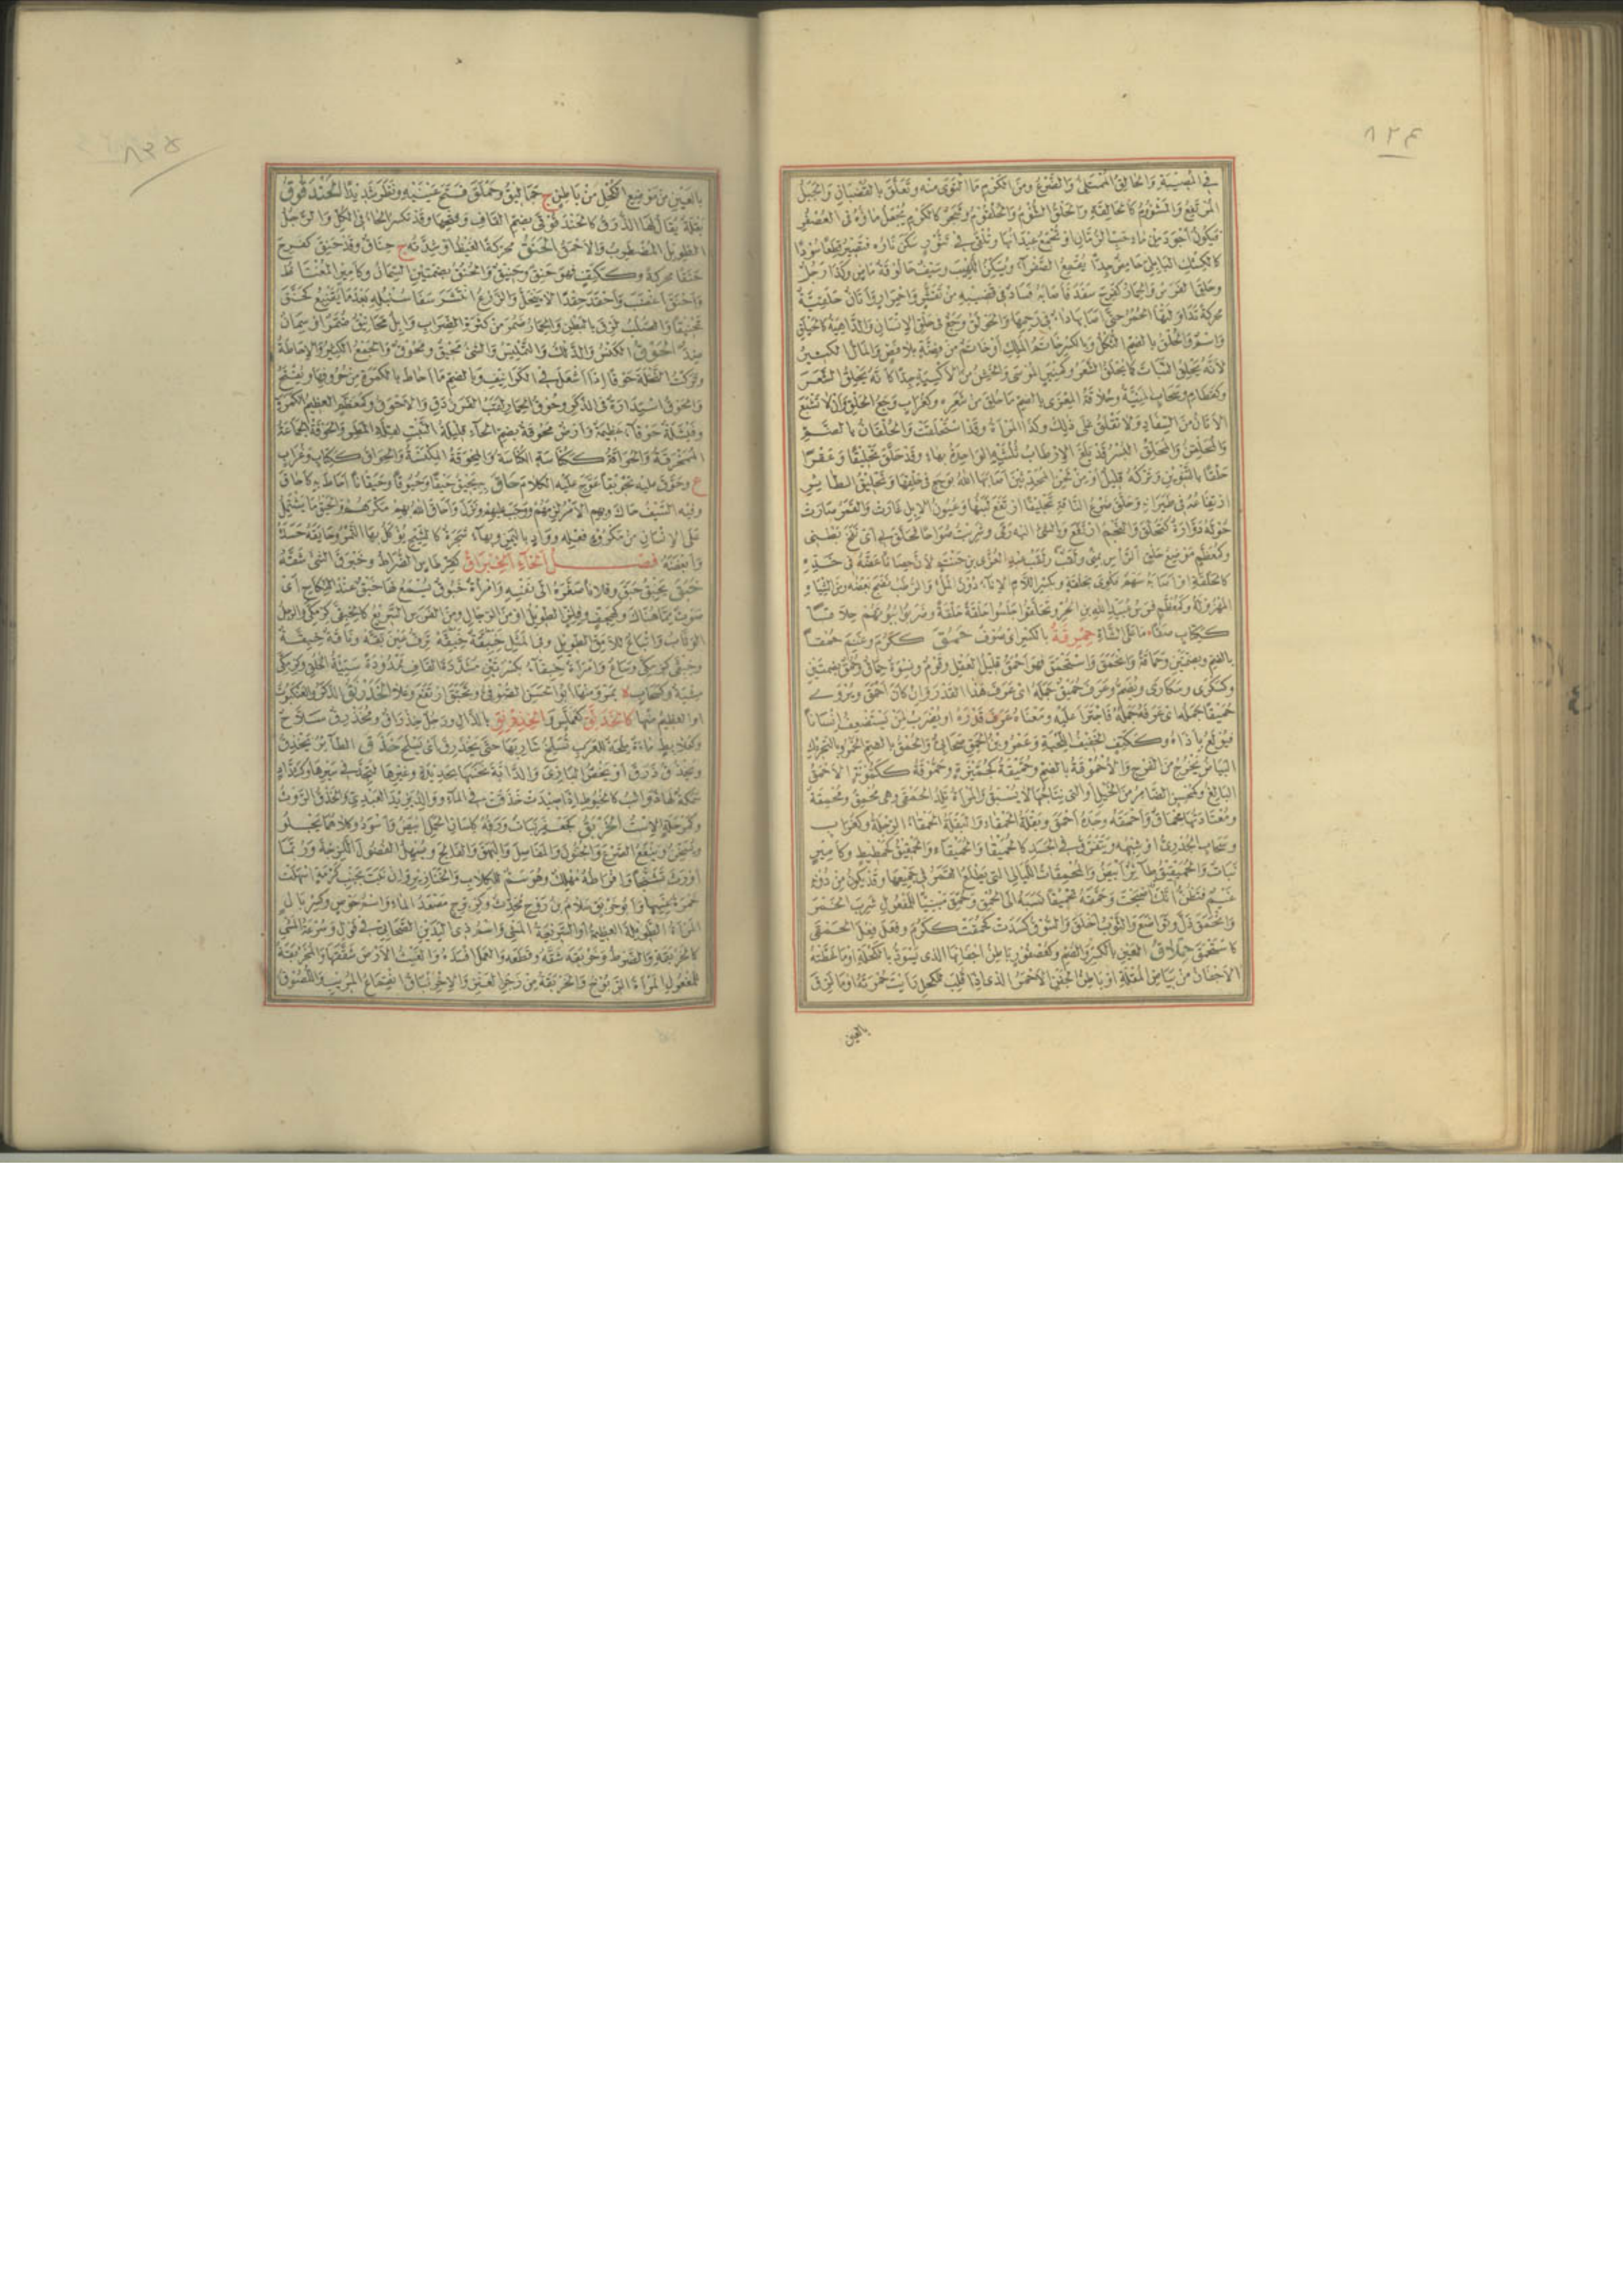 ٨٢٤
في المصيبة والحالق الممتلئ والضرع ومن الكرم ما التوى منه وتعلق بالقضبان والجبل
المرتفع والمشؤوم كالحالقة والحلق الشؤم والحلقوم وشجر كالكرم يجعل ماؤه في العصفر
فيكون أجود من ماء حب الرمان او تجمع عيدانها وتلقى في تنور سكن ناره فتصير قطعا سودا
كالكشك البابلي حامض جدا يقمع الصفراء ويسكن اللهيب وسيف حالوقة ماض وكذا رجل
وحلق الفرس والحمار كفرح سفد فأصابه فساد في قضيبه من تقشر واحمرار وأتان حلقية
محركة تداولتها الحمر حتى أصابها داء في رحمها والحولق وجع في حلق الإنسان والداهية كالحيلق
واسم والحلق بالضم الثكل وبالكسر خاتم الملك أو خاتم من فضة بلا فص والمال الكثير
لأنه يحلق النبات كما يحلق الشعر وكمنبر الموسى والخشن من الأكسية جدا كأنه يحلق الشعر
وكقطام وسحاب المنية وحلاقة المعزى بالضم ما حلق من شعره وكغراب وجع الحلق وأن لا تشبع
الأتان من السفاد ولا تعلق على ذلك وكذا المرأة وقد استحلقت والحلقان بالضم
والمحلقن والمحلق البسر قد بلغ الإرطاب ثلثيه الواحدة بهاء وقد حلق تحليقا وعقرا
حلقا بالتنوين وتركه قليل أو من لحن المحدثين أصابها الله بوجع في حلقها وتحليق الطائر
ارتفاعه في طيرانه وحلق ضرع الناقة تحليقا ارتفع لبنها وعيون الإبل غارت والقمر صارت
حوله دوارة كتحلق والنجم ارتفع والشيء اليه رمى وشربت صواحا فحلق بي أي نفخ بطني
وكمعظم موضع حلق الرأس بمنى ولقب عبد العزى بن حنتم لأن حصانا عضه في خده
كالحلقة او أصابه سهم فكوي بحلقة وبكسر اللام الإناء دون الملء والرطب نضج بعضه ومن الشياه
المهزولة وكمعظم فرس عبيد الله بن الحر وتحلقوا جلسوا حلقة حلقة وضربوا بيوتهم حلاقا
ككتاب صفا ما على الشاة حمرقة بالكسر اى صوف حمق ككرم وغنم حمقا
بالضم وبضمتين وحماقة وانحمق واستحمق فهو أحمق قليل العقل وقوم ونسوة حماق وحمق بضمتين
وكسكرى وسكارى ويضم وعرف حميق جمله اى عرف هذا القدر وإن كان أحمق ويروى
حميقا جمله اى عرفه جمله فاجترأ عليه او معناه عرف قدره او يضرب لمن يستضعف إنسانا
فيولع بأذاه وككتف الخفيف اللحية وعمرو بن الحمق صحابي والحمق بالضم الخمر وبالتحريك
البياض يخرج من الفرج والأحموقة بالضم وحميقة كجميزة وحموقة ككمونة الأحمق
البالغ وكمحسن الضامر من الخيل أو التي نتاجها لا يسبق والمرأة تلد الحمقى وهي محمق ومحمقة
ومعتادتها محماق وأحمقه وجده أحمق وبقلة الحمقاء والبقلة الحمقاء الرجلة وكغراب
وسحاب الجدري او شبهه ويتفرق في الجسد كالحميقا والحميقاء والحمقيق كخطيط وكأمير
نبات والحميميق طائر أبيض والمحمقات الليالي التي يطلع القمر في جميعها وقد يكون من دونه
غيم فتظن أنك أصبحت وحمقه تحميقا نسبه الى الحمق وحمق مبنيا للمفعول شرب الخمر
وانحمق ذل وتواضع والثوب أخلق والسوق كسدت كحمقت ككرم وفعل فعل الحمقى
كاستحمق حملاق العين بالكسر والضم وكعصفور باطن أجفانها الذي يسود بالكحلة او ما غطته
الأجفان من بياض المقلة او باطن الجفن الأحمر الذي إذا قلب للكحل رأيت حمرته او ما لزق
بالعين
٨٢٥
بالعين من موضع الكحل من باطن ج حماليق وحملق فتح عينيه ونظر شديدا الحندقوق
بقلة يقال لها الذرق كالحندقوقى بضم القاف وفتحها وقد تكسر الحاء في الكل والرجل
الطويل المضطرب والأحمق الحنق محركة الغيظ او شدته ج حناق وقد حنق كفرح
حنقا محركة وككتف فهو حنق وحنيق والحنق بضمتين السمان وكأمير المغتاظ
وأحنق أغضب وأحقد حقدا لا ينحل والزرع انتشر سفا سنبله بعد ما يقنبع كحنق
تحنيقا والصلب لزق بالبطن والحمار ضمر من كثرة الضراب وإبل محانيق ضمر او سمان
ضد الحوق الكنس والدلك والتمليس والشيء محيق ومحوق والجمع الكثير والإحاطة
وتركت النخلة حوقا إذا أشعل في الكرانيف وبالضم ما أحاط بالكمرة من حروفها ويفتح
والحوق استدارة في الذكر وحوق الحمار لقب الفرزدق والأحوق وكمعظم العظيم الكمرة
وفيشلة حوقاء عظيمة وأرض محوقة بضم الحاء قليلة النبت لقلة المطر والحوقة الجماعة
الممخرقة والحواقة ككناسة الكناسة والمحوقة المكنسة والحواق ككتاب وغراب
ع وحوق عليه تحويقا عوج عليه الكلام حاق به يحيق حيقا وحيوقا وحيقانا أحاط به كأحاق
وفيه السيف حاك وبهم الأمر لزمهم ووجب عليهم ونزل وأحاق الله بهم مكرهم والحيق ما يشتمل
على الإنسان من مكروه فعله وواد باليمن وبهاء شجرة كالشيح يؤكل بها التمر وحايقه حسده
وأبغضه فصل الخاء الخبراق كقرطاس الضراط وخبرق الشيء شقه
خبق يخبق خبق وفلانا صغره الى نفسه وامرأة خبوق يسمع لها خبق عند النكاح أي
صوت مما هناك وكهجف وفلز الطويل او من الرجال ومن الفرس السريع كالخبقى كزمكى والرجل
الوثاب واتباع للأمق الطويل وفي المثل خبقة خبقة ترق عين بقة وناقة خبقة
وخبقى كزمكى وساع وامرأة خبقاء بكسرتين مشددة القاف ممدودة سيئة الخلق وكزمكى
مشية وكصاحب ة بمرو منها أبو الحسن الصوفي وتخبق ارتفع وعلا الخذرنق الذكر والعنكبوت
او العظيم منها كالخدرنق كعملس والخذرنق بالذال ورجل خذراق ومخذرق سلاح
وكعلابط ماءة ملحة للعرب تسلح شاربها حتى يخذرق أي يسلح خذق الطائر يخذق
ويخذق ذرق أو يخص البازي والدابة نخسها بحديدة وغيرها لتجد في سيرها وكشداد
سمكة لها ذوائب كالخيوط إذا صيدت خذقت في الماء ووالد يزيد العبدي والخذق الروث
وكمرحلة الإست الخربق كجعفر نبات ورقه كلسان الحمل أبيض وأسود وكلاهما يجلو
ويسخن وينفع الصرع والجنون والمفاصل والبهق والفالج ويسهل الفضول اللزجة وربما
أورث تشنجا وإفراطه مهلك وهو سم للكلاب والخنازير وإن نبت بجنب كرمة أسهلت
خمرة عنبها وأبو خربق سلامة بن روح محدث وكزبرج مصنعة الماء واسم حوض وكسربال
المرأة الطويلة العظيمة أو السريعة المشي واسم ذي اليدين الصحابي في قول وسرعة المشي
كالخربقة والضرط وخربقه شقه وقطعه والعمل أفسده والغيث الأرض شققها والمخربقة
للمفعول المرأة التي والخربقة من زجر العنز والإخرنباق انقماع المريب واللصوق